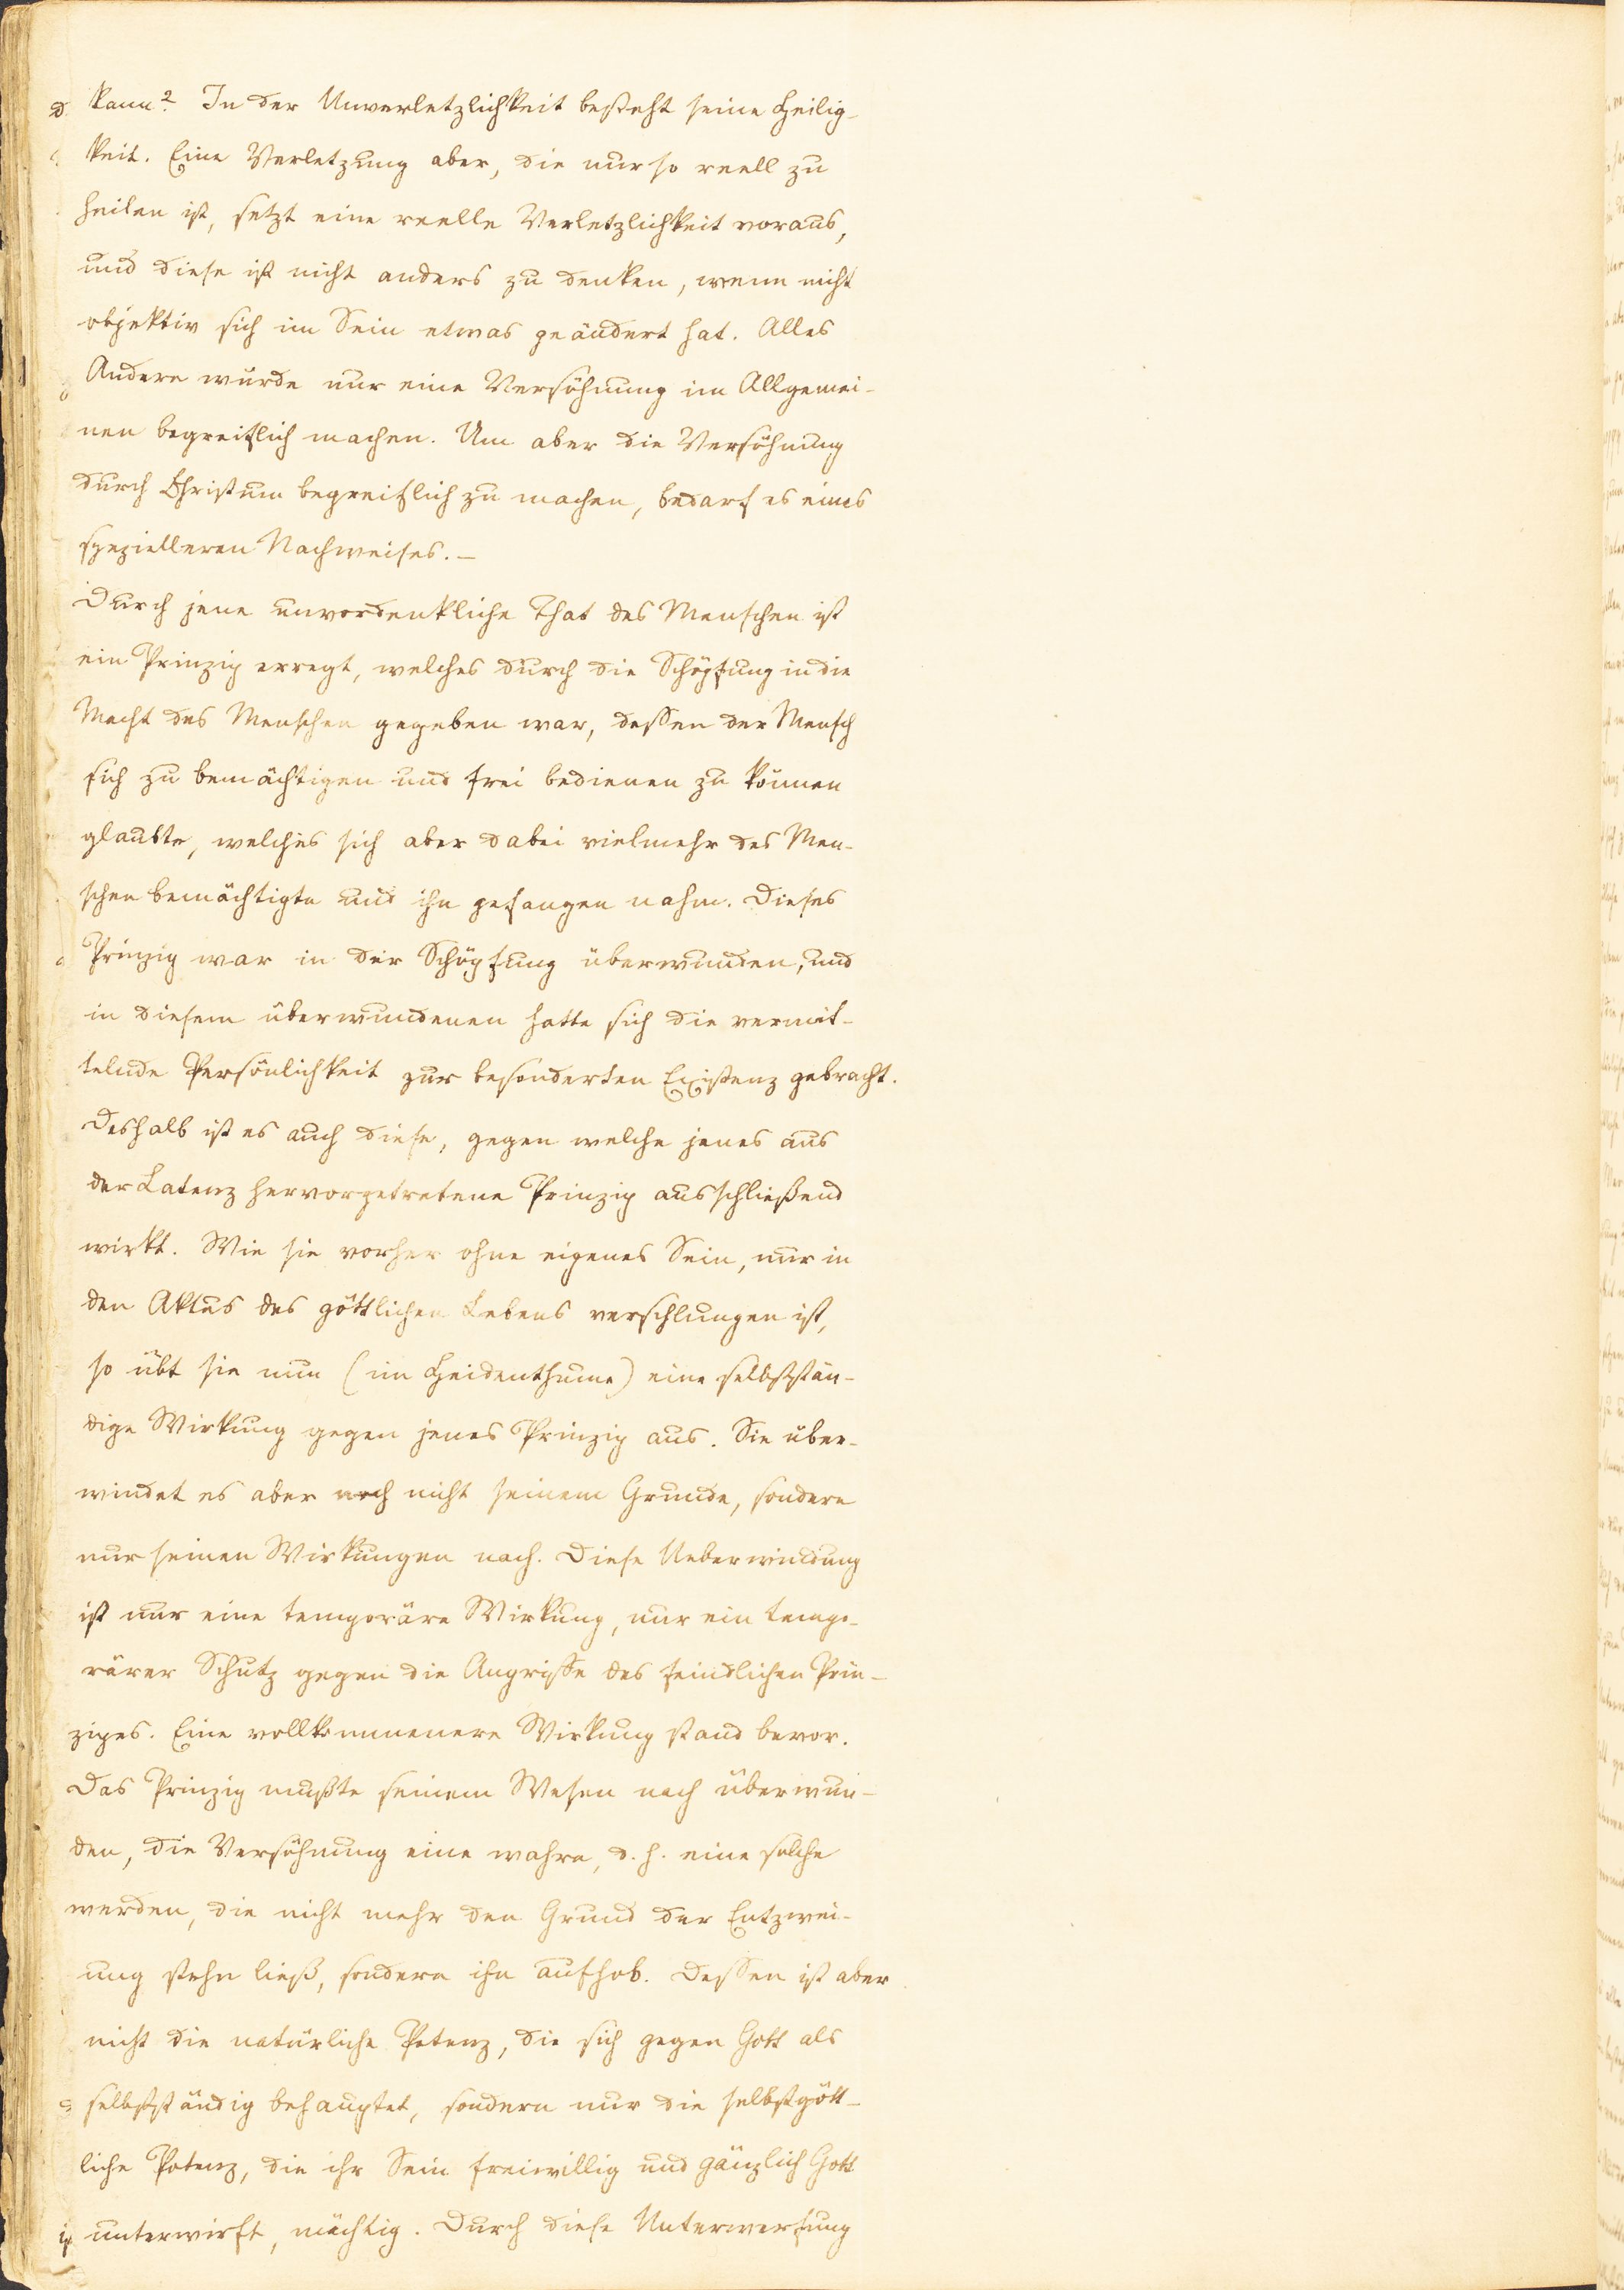 kann? In der Unverletzlichkeit besteht seine Heilig-
keit. Eine Verletzung aber, die nur so reell zu
heilen ist, setzt eine reelle Verletzlichkeit voraus,
und diese ist nicht anders zu denken, wenn nicht
objektiv sich im Sein etwas geändert hat. Alles
Andere würde nur eine Versöhnung im Allgemei-
nen begreiflich machen. Um aber die Versöhnung
durch Christum begreiflich zu machen, bedarf es eines
spezielleren Nachweises. —
Durch jene unvordenkliche That des Menschen ist
ein Prinzip erregt, welches durch die Schöpfung in die
Macht des Menschen gegeben war, dessen der Mensch
sich zu bemächtigen und frei bedienen zu können
glaubte, welches sich aber dabei vielmehr des Men-
schen bemächtigte und ihn gefangen nahm. Dieses
Prinzip war in der Schöpfung überwunden, und
in diesem überwundenen hatte sich die vermit-
telnde Persönlichkeit zur besonderten Existenz gebracht.
Deshalb ist es auch diese, gegen welche jenes aus
der Latenz hervorgetretene Prinzip ausschließend
wirkt. Wie sie vorher ohne eigenes Sein, nur in
den Aktus des göttlichen Lebens verschlungen ist,
so übt sie nun (im Heidenthume) eine selbststän-
dige Wirkung gegen jenes Prinzip aus. Sie über-
windet es aber noch nicht seinem Grunde, sondern
nur seinen Wirkungen nach. Diese Ueberwindung
ist nur eine temporäre Wirkung, nur ein tempo-
rärer Schutz gegen die Angriffe des feindlichen Prin-
zipes. Eine vollkommenere Wirkung stand bevor.
Das Prinzip mußte seinem Wesen nach überwun-
den, die Versöhnung eine wahre, d. h. eine solche
werden, die nicht mehr den Grund der Entzwei-
ung stehn ließ, sondern ihn aufhob. Dessen ist aber
nicht die natürliche Potenz, die sich gegen Gott als
selbstständig behauptet, sondern nur die selbstgött-
liche Potenz, die ihr Sein freiwillig und gänzlich Gott
unterwirft, mächtig. Durch diese Unterwerfung